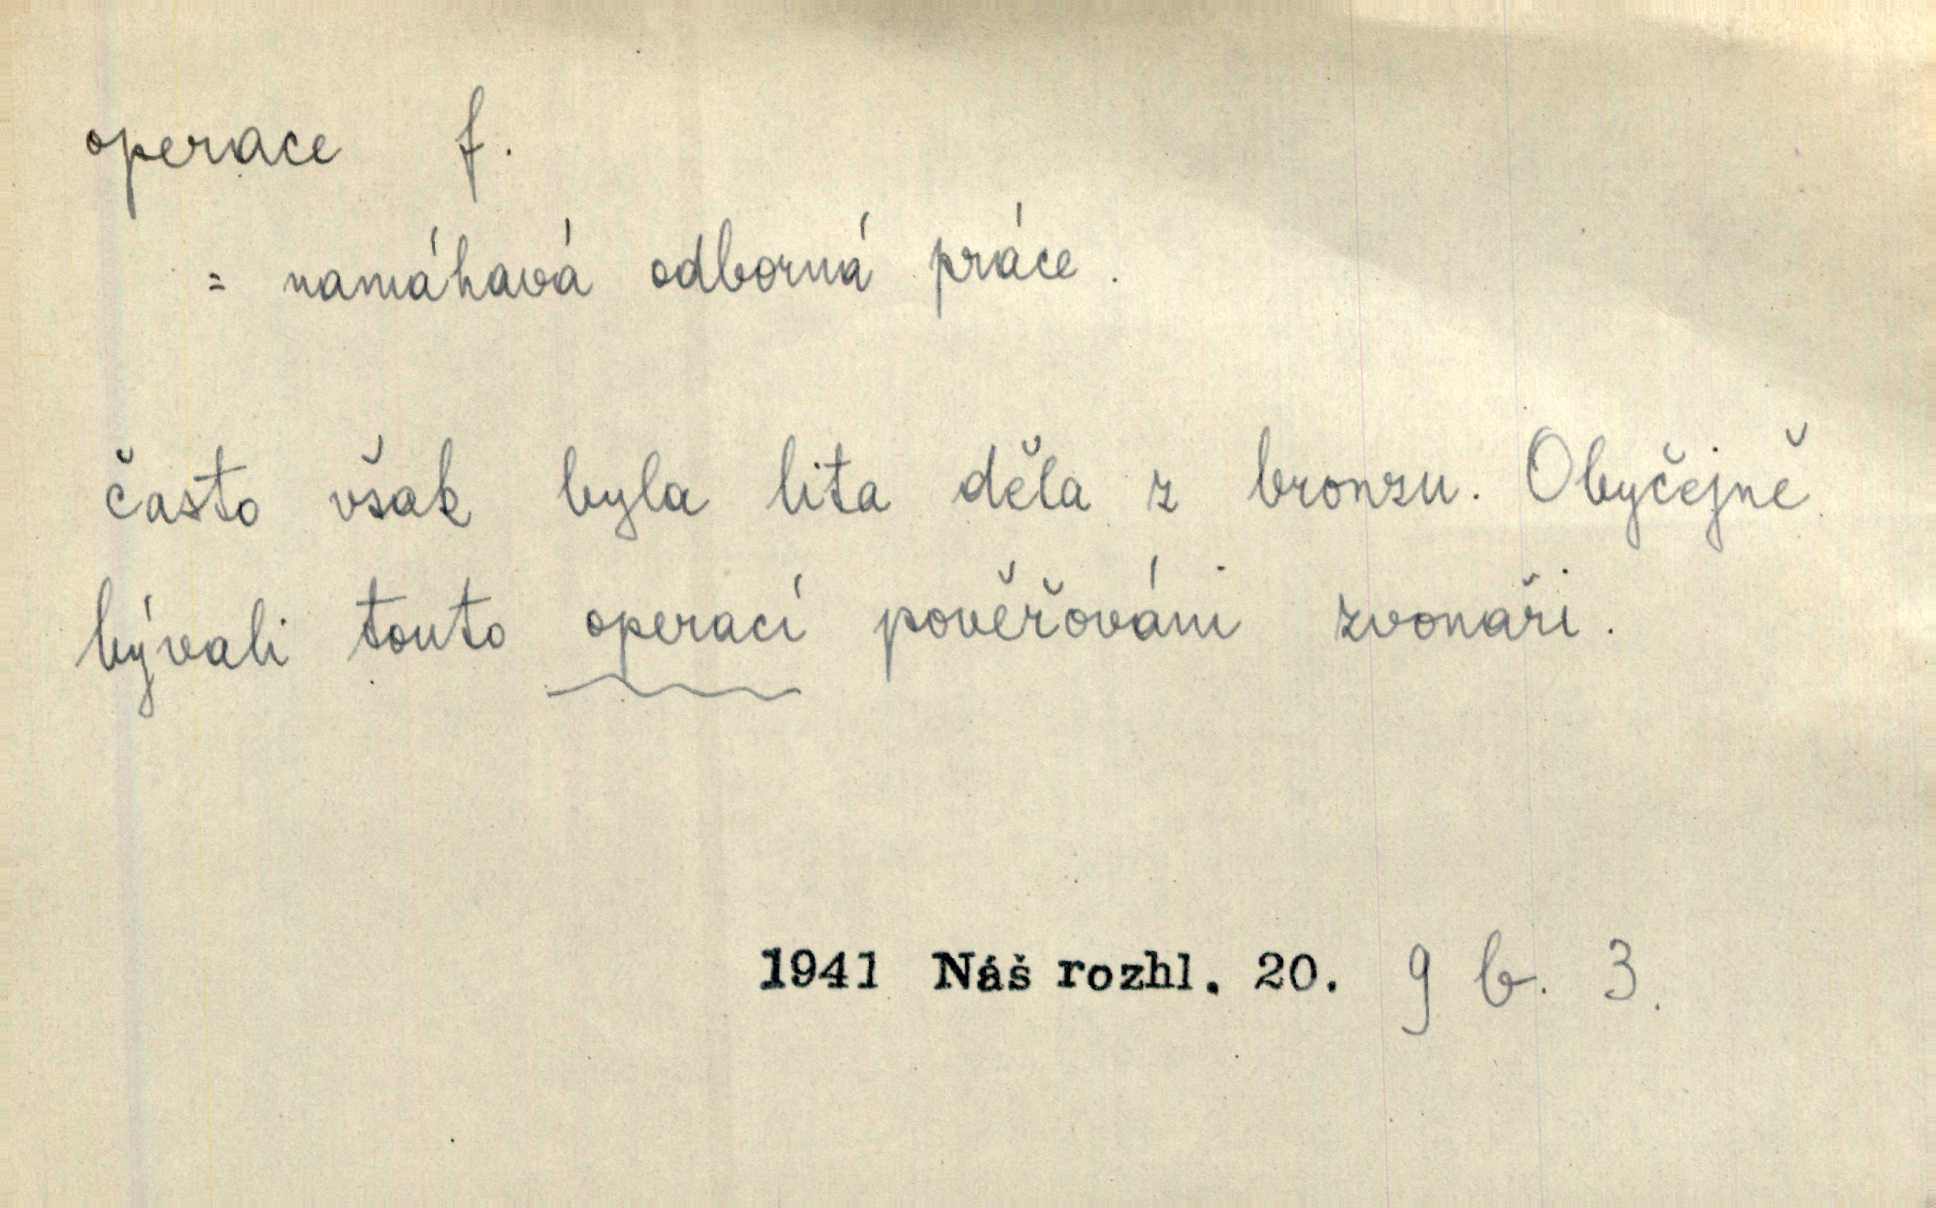 operace f.
= namáhavá odborná práce.
často však byla lita děla z bronzu. Obyčejně
bývali touto operací pověřováni zvonaři.
1941 Náš rozhl. 20. 9 b. 3.